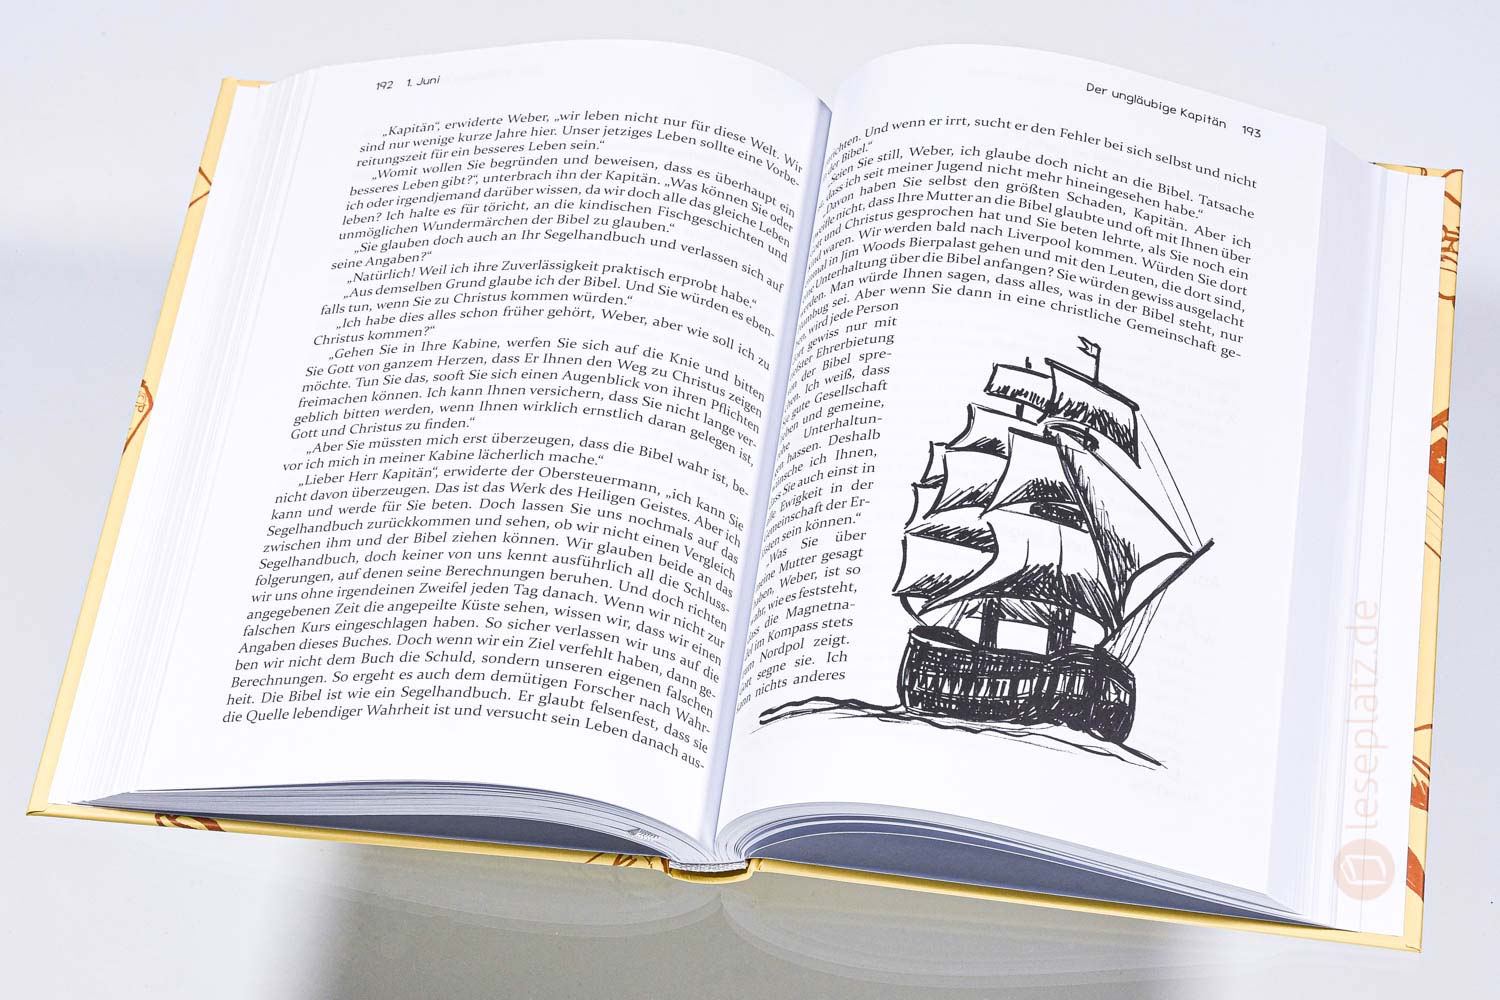 192 1. Juni
„Kapitän“, erwiderte Weber, „wir leben nicht nur für diese Welt. Wir
sind nur wenige kurze Jahre hier. Unser jetziges Leben sollte eine Vorbe-
reitungszeit für ein besseres Leben sein.“
„Womit wollen Sie begründen und beweisen, dass es überhaupt ein
besseres Leben gibt?“, unterbrach ihn der Kapitän. „Was können Sie oder
ich oder irgendjemand darüber wissen, da wir doch alle das gleiche Leben
leben? Ich halte es für töricht, an die kindischen Fischgeschichten und
unmöglichen Wundermärchen der Bibel zu glauben.“
„Sie glauben doch auch an Ihr Segelhandbuch und verlassen sich auf
seine Angaben?“
„Natürlich! Weil ich ihre Zuverlässigkeit praktisch erprobt habe.“
„Aus demselben Grund glaube ich der Bibel. Und Sie würden es eben-
falls tun, wenn Sie zu Christus kommen würden.“
„Ich habe dies alles schon früher gehört, Weber, aber wie soll ich zu
Christus kommen?“
„Gehen Sie in Ihre Kabine, werfen Sie sich auf die Knie und bitten
Sie Gott von ganzem Herzen, dass Er Ihnen den Weg zu Christus zeigen
möchte. Tun Sie das, sooft Sie sich einen Augenblick von ihren Pflichten
freimachen können. Ich kann Ihnen versichern, dass Sie nicht lange ver-
geblich bitten werden, wenn Ihnen wirklich ernstlich daran gelegen ist,
Gott und Christus zu finden.“
„Aber Sie müssten mich erst überzeugen, dass die Bibel wahr ist, be-
vor ich mich in meiner Kabine lächerlich mache.“
„Lieber Herr Kapitän“, erwiderte der Obersteuermann, „ich kann Sie
nicht davon überzeugen. Das ist das Werk des Heiligen Geistes. Aber ich
kann und werde für Sie beten. Doch lassen Sie uns nochmals auf das
Segelhandbuch zurückkommen und sehen, ob wir nicht einen Vergleich
zwischen ihm und der Bibel ziehen können. Wir glauben beide an das
Segelhandbuch, doch keiner von uns kennt ausführlich all die Schluss-
folgerungen, auf denen seine Berechnungen beruhen. Und doch richten
wir uns ohne irgendeinen Zweifel jeden Tag danach. Wenn wir nicht zur
angegebenen Zeit die angepeilte Küste sehen, wissen wir, dass wir einen
falschen Kurs eingeschlagen haben. So sicher verlassen wir uns auf die
Angaben dieses Buches. Doch wenn wir ein Ziel verfehlt haben, dann ge-
ben wir nicht dem Buch die Schuld, sondern unseren eigenen falschen
Berechnungen. So ergeht es auch dem demütigen Forscher nach Wahr-
heit. Die Bibel ist wie ein Segelhandbuch. Er glaubt felsenfest, dass sie
die Quelle lebendiger Wahrheit ist und versucht sein Leben danach aus-
Der ungläubige Kapitän 193
Und wenn er irrt, sucht er den Fehler bei sich selbst und nicht
der Bibel.“
Sie still, Weber, ich glaube doch nicht an die Bibel. Tatsache
dass ich seit meiner Jugend nicht mehr hineingesehen habe.“
„Davon haben Sie selbst den größten Schaden, Kapitän. Aber ich
nicht, dass Ihre Mutter an die Bibel glaubte und oft mit Ihnen über
und Christus gesprochen hat und Sie beten lehrte, als Sie noch ein
waren. Wir werden bald nach Liverpool kommen. Würden Sie dort
in Jim Woods Bierpalast gehen und mit den Leuten, die dort sind,
Unterhaltung über die Bibel anfangen? Sie würden gewiss ausgelacht
Man würde Ihnen sagen, dass alles, was in der Bibel steht, nur
sei. Aber wenn Sie dann in eine christliche Gemeinschaft ge-
wird jede Person
gewiss nur mit
Ehrerbietung
der Bibel spre-
Ich weiß, dass
gute Gesellschaft
und gemeine,
Unterhaltun-
hassen. Deshalb
ich Ihnen,
Sie auch einst in
Ewigkeit in der
der Er-
sein können.“
„Was Sie über
Mutter gesagt
Weber, ist so
wie es feststeht,
die Magnetna-
im Kompass stets
Nordpol zeigt.
segne sie. Ich
nichts anderes
leseplatz.de